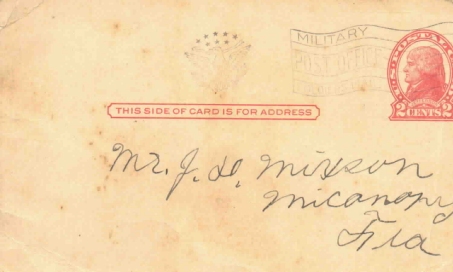 MILITARY
POST OFFICE
U.S. POSTAGE
2 CENTS 2
THIS SIDE OF CARD IS FOR ADDRESS
Mr. J. D. Mixson
Micanopy
Fla